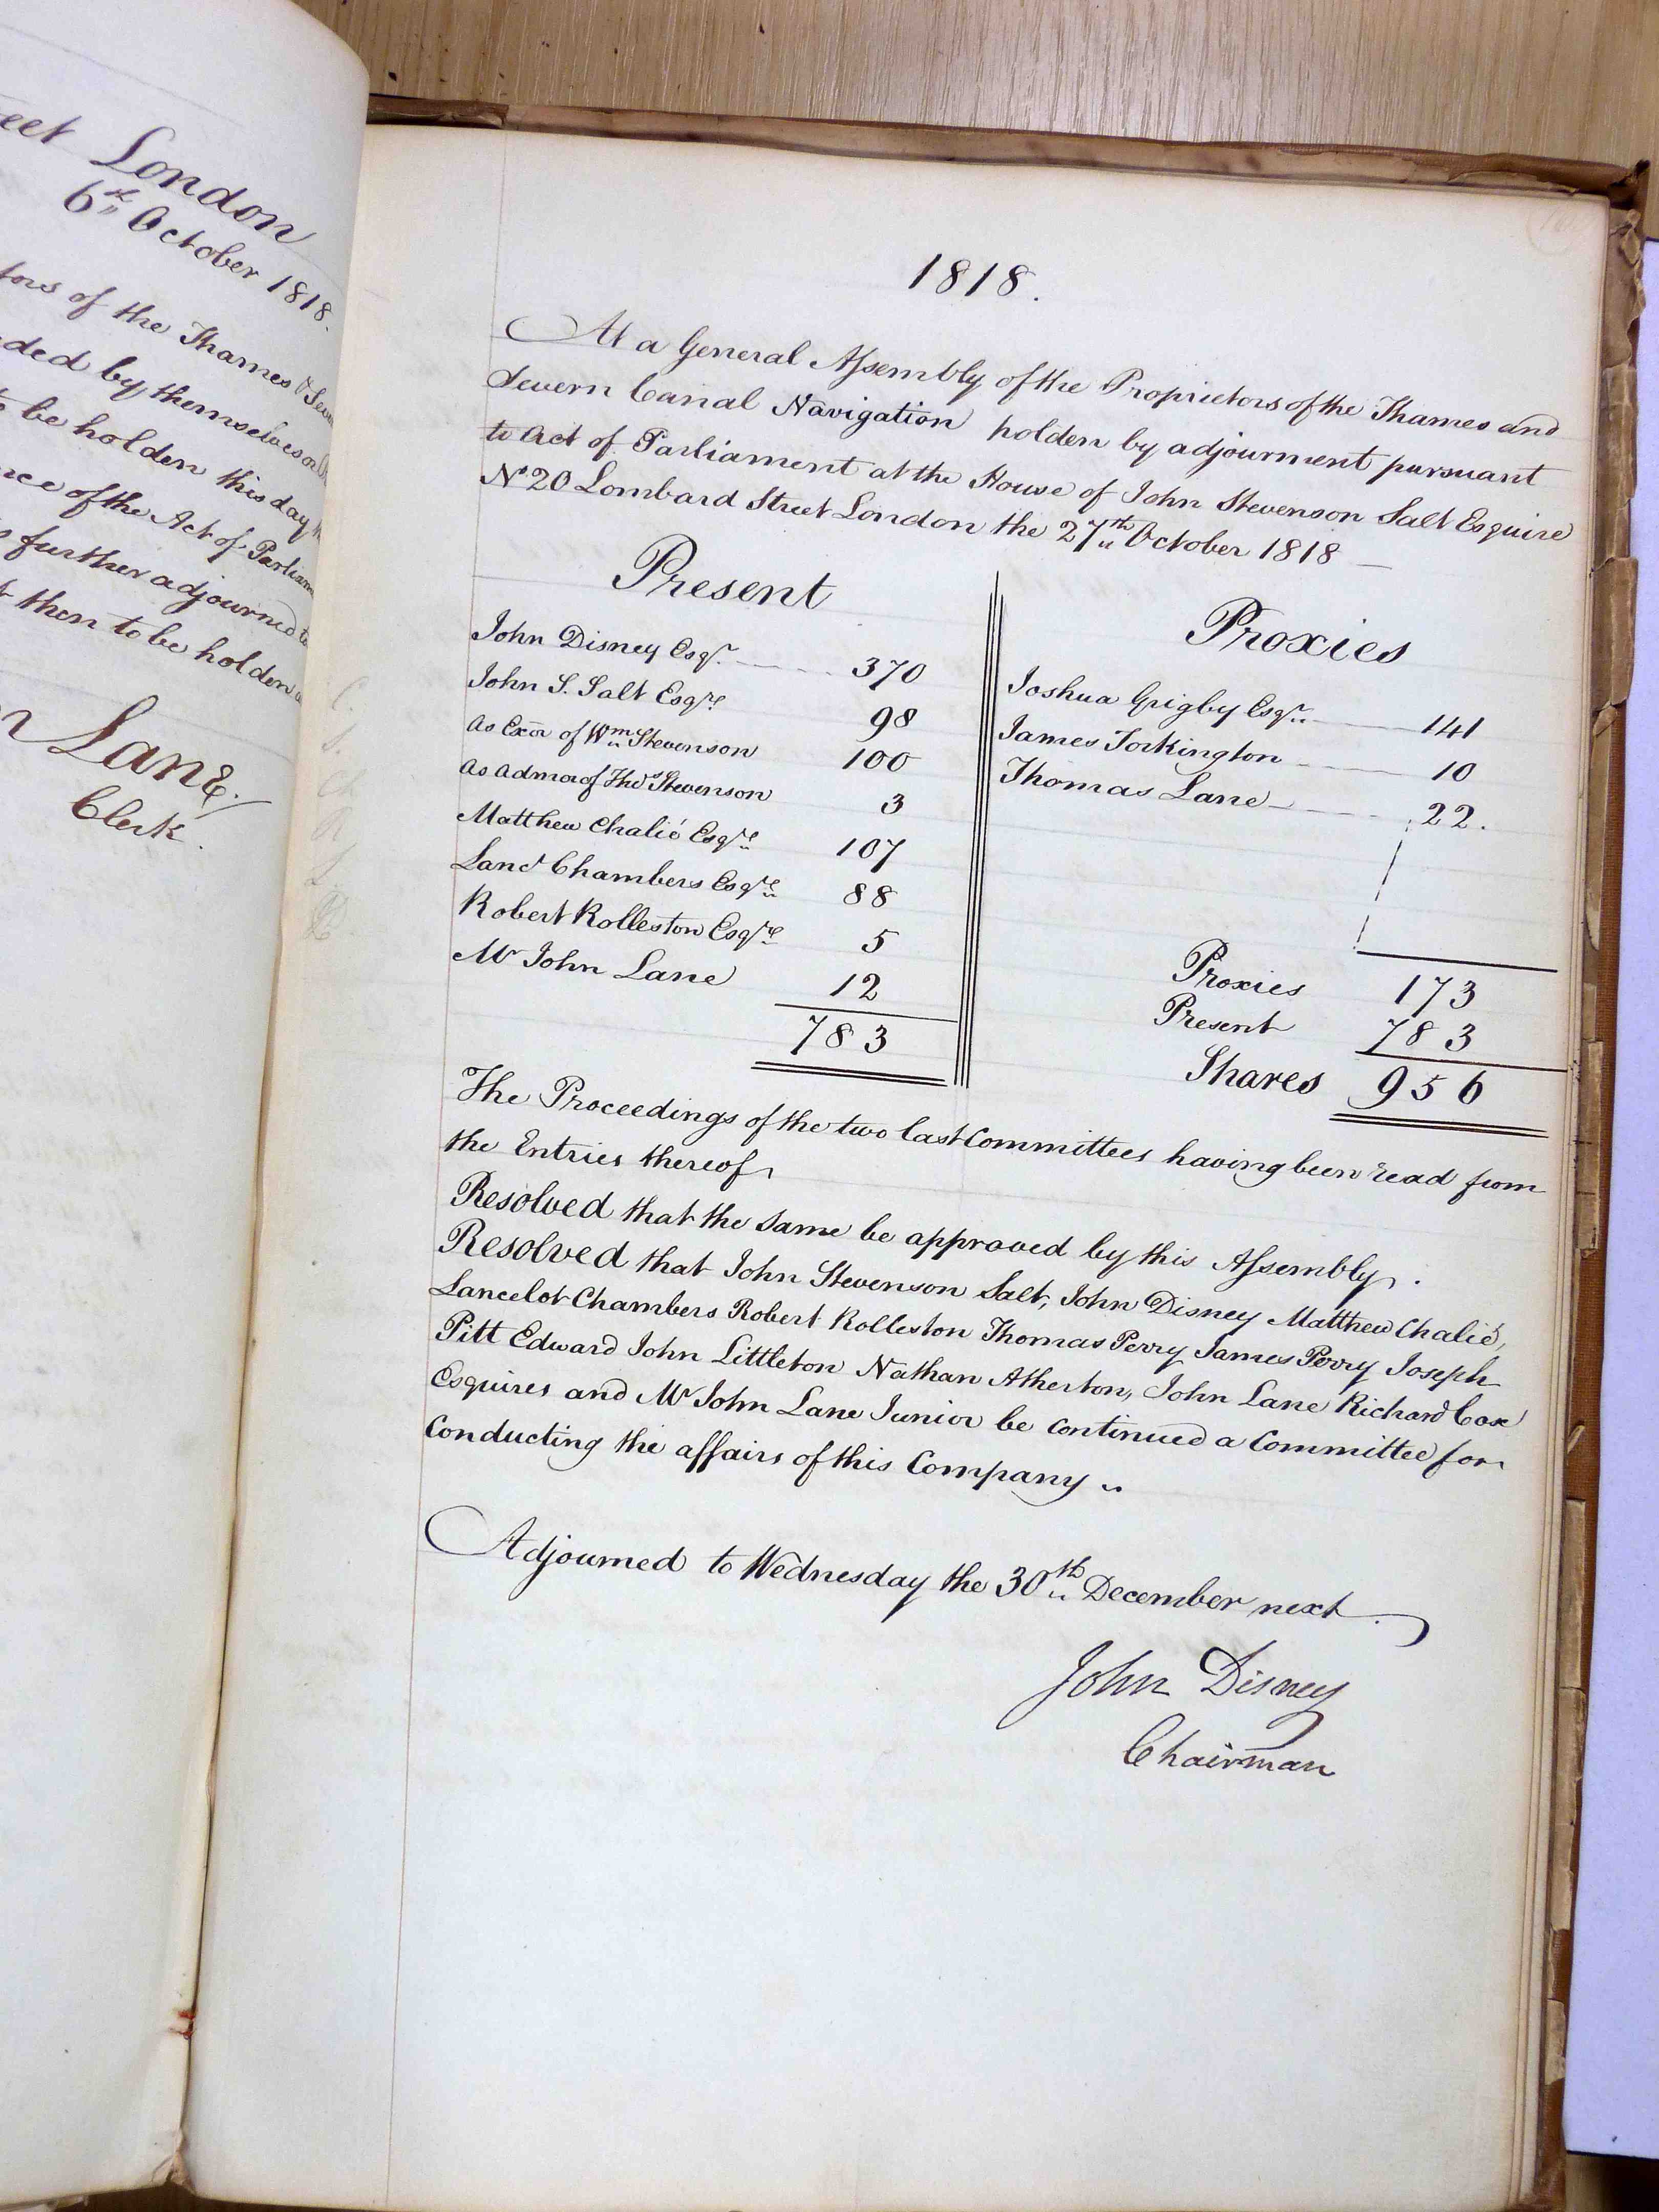 eet London
6th October 1818.
tors of the Thames & Sev
ded by themselves or
to be holden this day
nce of the Act of Parliam
s further adjourned to
t then to be holden
n Lane
Clerk.
1818.
At a General Assembly of the Proprietors of the Thames and
Severn Canal Navigation holden by adjourment pursuant
to Act of Parliament at the House of John Stevenson Salt Esquire
No 20 Lombard Street London the 27th October 1818 —
Present
John Disney Esqr. 370
John S. Salt Esqre 98
as Exor of Wm Stevenson 100
as admor of Thos Stevenson 3
Matthew Chalié Esqre 107
Lanct Chambers Esqre 88
Robert Rolleston Esqre 5
Mr John Lane 12
783
Proxies
Joshua Grigby Esqr. 141
James Torkington 10
Thomas Lane 22.
Proxies 173
Present 783
Shares 956
The Proceedings of the two last Committees having been read from
the Entries thereof
Resolved that the same be approved by this Assembly.
Resolved that John Stevenson Salt, John Disney Matthew Chalié,
Lancelot Chambers Robert Rolleston Thomas Perry James Perry Joseph
Pitt Edward John Littleton Nathan Atherton, John Lane Richard Cox
Esquires and Mr John Lane Junior be continued a Committee for
Conducting the affairs of this Company
Adjourned to Wednesday the 30th December next.
John Disney
Chairman